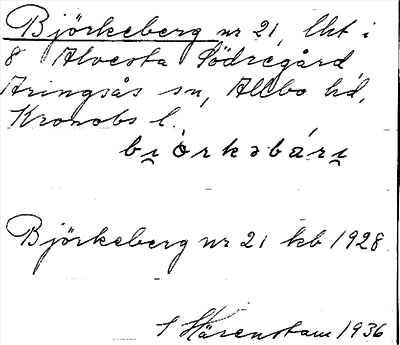 Björkeberg nr 21, lht i
8 Alvesta Södregård,
Aringsås sn, Allbo hd,
Kronobs l.
bi̯òrkəbári̯
Björkeberg nr 21 kb 1928
S Härenstam 1936